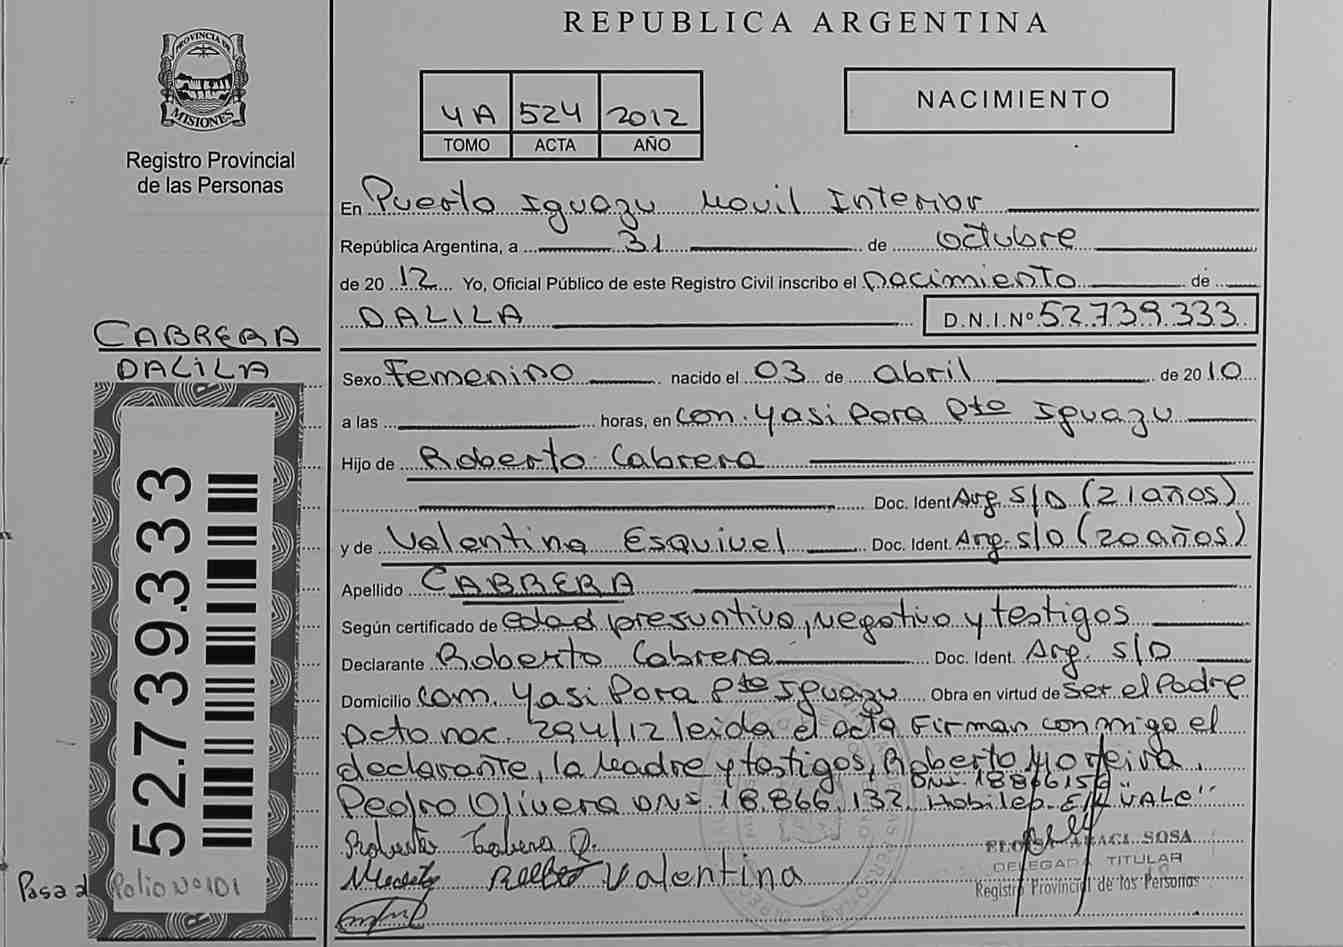 REPUBLICA ARGENTINA
PROVINCIA DE
MISIONES
Registro Provincial
de las Personas
4A 524 2012
TOMO ACTA AÑO
NACIMIENTO
En Puerto Iguazu Movil Interior
República Argentina, a 31 de octubre
de 20 12 Yo, Oficial Público de este Registro Civil inscribo el nacimiento de
DALILA D.N.I.Nº 52.739.333
CABRERA
DALILA
52.739.333
Pasa al Folio Nº 101
Sexo Femenino nacido el 03 de abril de 20 10
a las horas, en com. Yasi Pora Pto Iguazu
Hijo de Roberto Cabrera
Doc. Ident Arg. S/D (21 años)
y de Valentina Esquivel Doc. Ident. Arg. S/D (20 años)
Apellido CABRERA
Según certificado de edad presuntiva, negativo y testigos
Declarante Roberto Cabrera Doc. Ident. Arg. S/D
Domicilio com. Yasi Pora Pto Iguazu Obra en virtud de ser el Padre
Acta nac. 294/12 leida el acta Firman conmigo el
declarante, la Madre y testigos, Roberto Moreira
DNI 18866159
Pedro Olivera DNI 18.866.132. "VALE"
Roberto Cabrera
Valentina
SOSA
DELEGADA TITULAR
Registro Provincial de las Personas